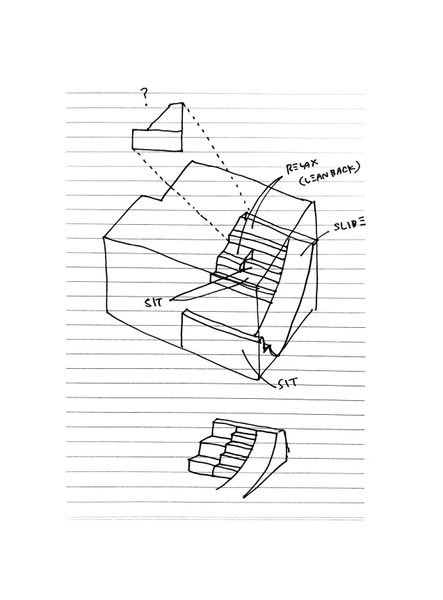 ?
RELAX
(LEANBACK)
SLIDE
SIT
SIT